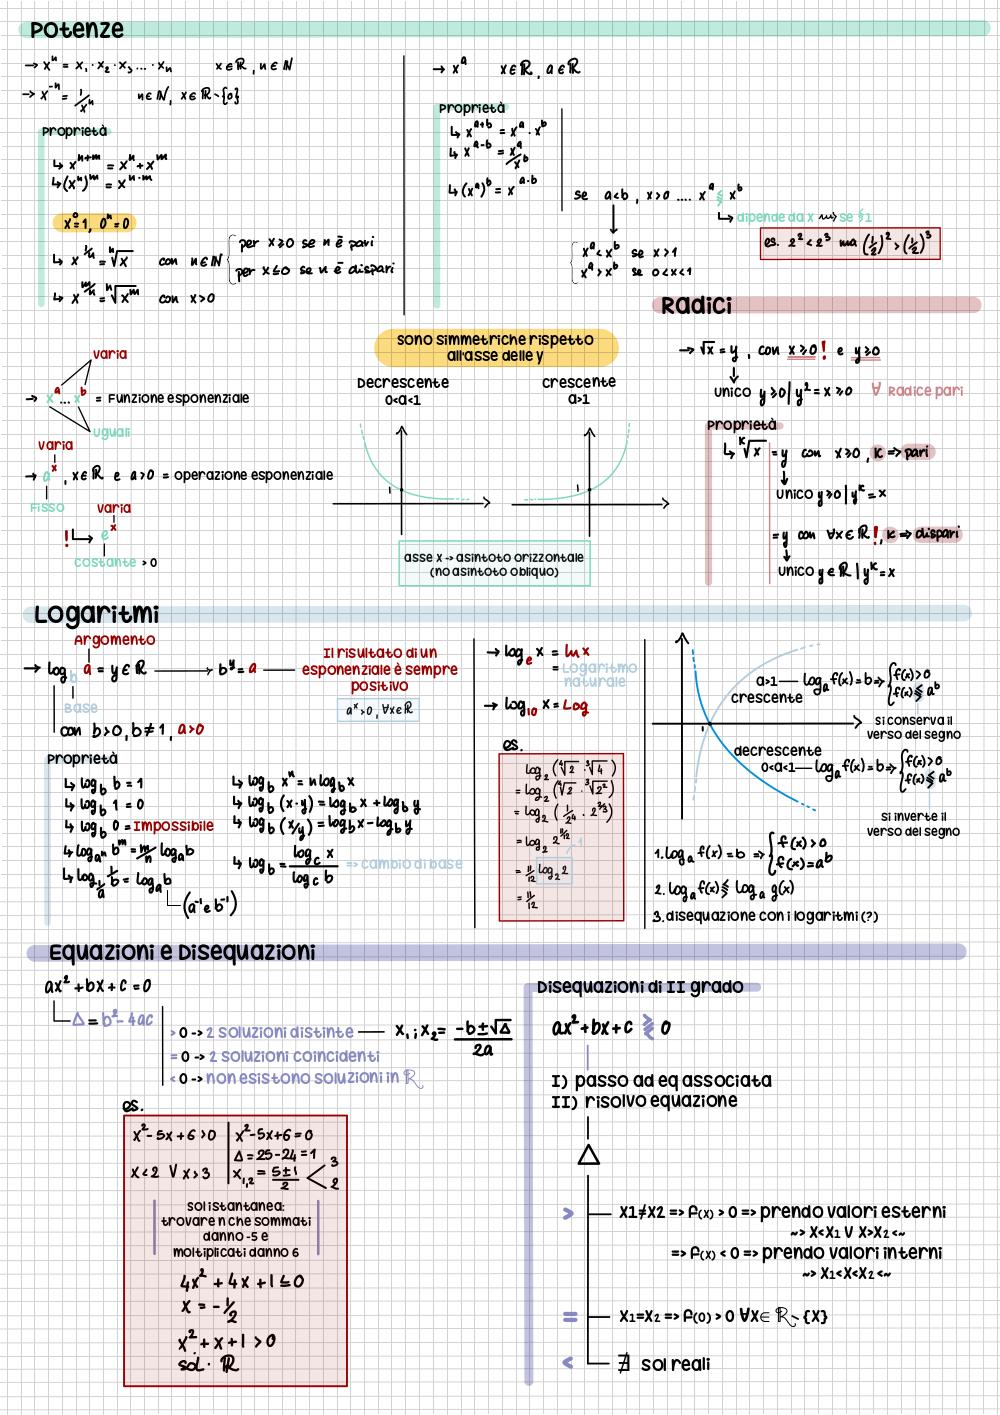 Potenze
→ xⁿ = x₁ · x₂ · x₃ ... · xₙ   x ∈ ℝ, n ∈ ℕ
→ x⁻ⁿ = 1/xⁿ   n ∈ ℕ, x ∈ ℝ∖{0}
Proprietà
↳ xⁿ⁺ᵐ = xⁿ + xᵐ
↳ (xⁿ)ᵐ = xⁿ·ᵐ
x⁰ = 1, 0ⁿ = 0
↳ x^(1/n) = ⁿ√x   con n ∈ ℕ { per x ≥ 0 se n è pari
per x ≤ 0 se n è dispari
↳ x^(m/n) = ⁿ√xᵐ   con x > 0
→ xᵃ   x ∈ ℝ, a ∈ ℝ
Proprietà
↳ xᵃ⁺ᵇ = xᵃ · xᵇ
↳ xᵃ⁻ᵇ = xᵃ/xᵇ
↳ (xᵃ)ᵇ = xᵃ·ᵇ
se a < b, x > 0 .... xᵃ ≶ xᵇ
↳ dipende da x ⇝ se ≶ 1
{ xᵃ < xᵇ se x > 1
xᵃ > xᵇ se 0 < x < 1
es. 2² < 2³ ma (1/2)² > (1/2)³
varia
→ xᵃ ... xᵇ = Funzione esponenziale
uguali
varia
→ aˣ, x ∈ ℝ e a > 0 = operazione esponenziale
Fisso
varia
! ↳ eˣ
costante > 0
sono simmetriche rispetto
all'asse delle y
Decrescente
0<a<1
crescente
a>1
1
1
asse x -> asintoto orizzontale
(no asintoto obliquo)
Radici
→ √x = y, con x ≥ 0 ! e y ≥ 0
unico y ≥ 0 | y² = x ≥ 0   ∀ Radice pari
Proprietà
↳ ᴷ√x = y con x ≥ 0, K => pari
unico y ≥ 0 | yᴷ = x
= y con ∀x ∈ ℝ !, K => dispari
unico y ∈ ℝ | yᴷ = x
Logaritmi
Argomento
→ log_b a = y ∈ ℝ → bʸ = a — Il risultato di un
esponenziale è sempre
positivo
Base
aˣ > 0, ∀x ∈ ℝ
con b > 0, b ≠ 1, a > 0
Proprietà
↳ log_b b = 1
↳ log_b 1 = 0
↳ log_b 0 = Impossibile
↳ log_aⁿ bᵐ = m/n log_a b
↳ log_1/a 1/b = log_a b
(a⁻¹ e b⁻¹)
↳ log_b xⁿ = n log_b x
↳ log_b (x·y) = log_b x + log_b y
↳ log_b (x/y) = log_b x - log_b y
↳ log_b = log_c x / log_c b => cambio di base
→ log_e x = ln x
= Logaritmo
naturale
→ log₁₀ x = Log
es.
log₂ (⁴√2 · ³√4)
= log₂ (⁴√2 · ³√2²)
= log₂ (1/2⁴ · 2^(2/3))
= log₂ 2^(11/12)
= 11/12 log₂ 2   1
= 11/12
1
a>1 — log_a f(x) = b => { f(x) > 0
f(x) ≶ aᵇ
crescente
si conserva il
verso del segno
decrescente
0<a<1 — log_a f(x) = b => { f(x) > 0
f(x) ≶ aᵇ
si inverte il
verso del segno
1. log_a f(x) = b => { f(x) > 0
f(x) = aᵇ
2. log_a f(x) ≶ log_a g(x)
3. disequazione con i logaritmi (?)
Equazioni e Disequazioni
ax² + bx + c = 0
Δ = b² - 4ac
> 0 -> 2 soluzioni distinte — x₁ ; x₂ = -b ± √Δ / 2a
= 0 -> 2 soluzioni coincidenti
< 0 -> non esistono soluzioni in ℝ
es.
x² - 5x + 6 > 0
x < 2 ∨ x > 3
x² - 5x + 6 = 0
Δ = 25 - 24 = 1
x₁,₂ = 5 ± 1 / 2 < 3
2
sol istantanea:
trovare n che sommati
danno -5 e
moltiplicati danno 6
4x² + 4x + 1 ≤ 0
x = - 1/2
x² + x + 1 > 0
sol. ℝ
Disequazioni di II grado
ax² + bx + c ≶ 0
I) passo ad eq associata
II) risolvo equazione
Δ
> X1≠X2 => f(x) > 0 => prendo valori esterni
~> X<X1 V X>X2 <~
=> f(x) < 0 => prendo valori interni
~> X1<X<X2 <~
= X1=X2 => f(0) > 0 ∀X∈ ℝ∖{X}
< ∄ sol reali